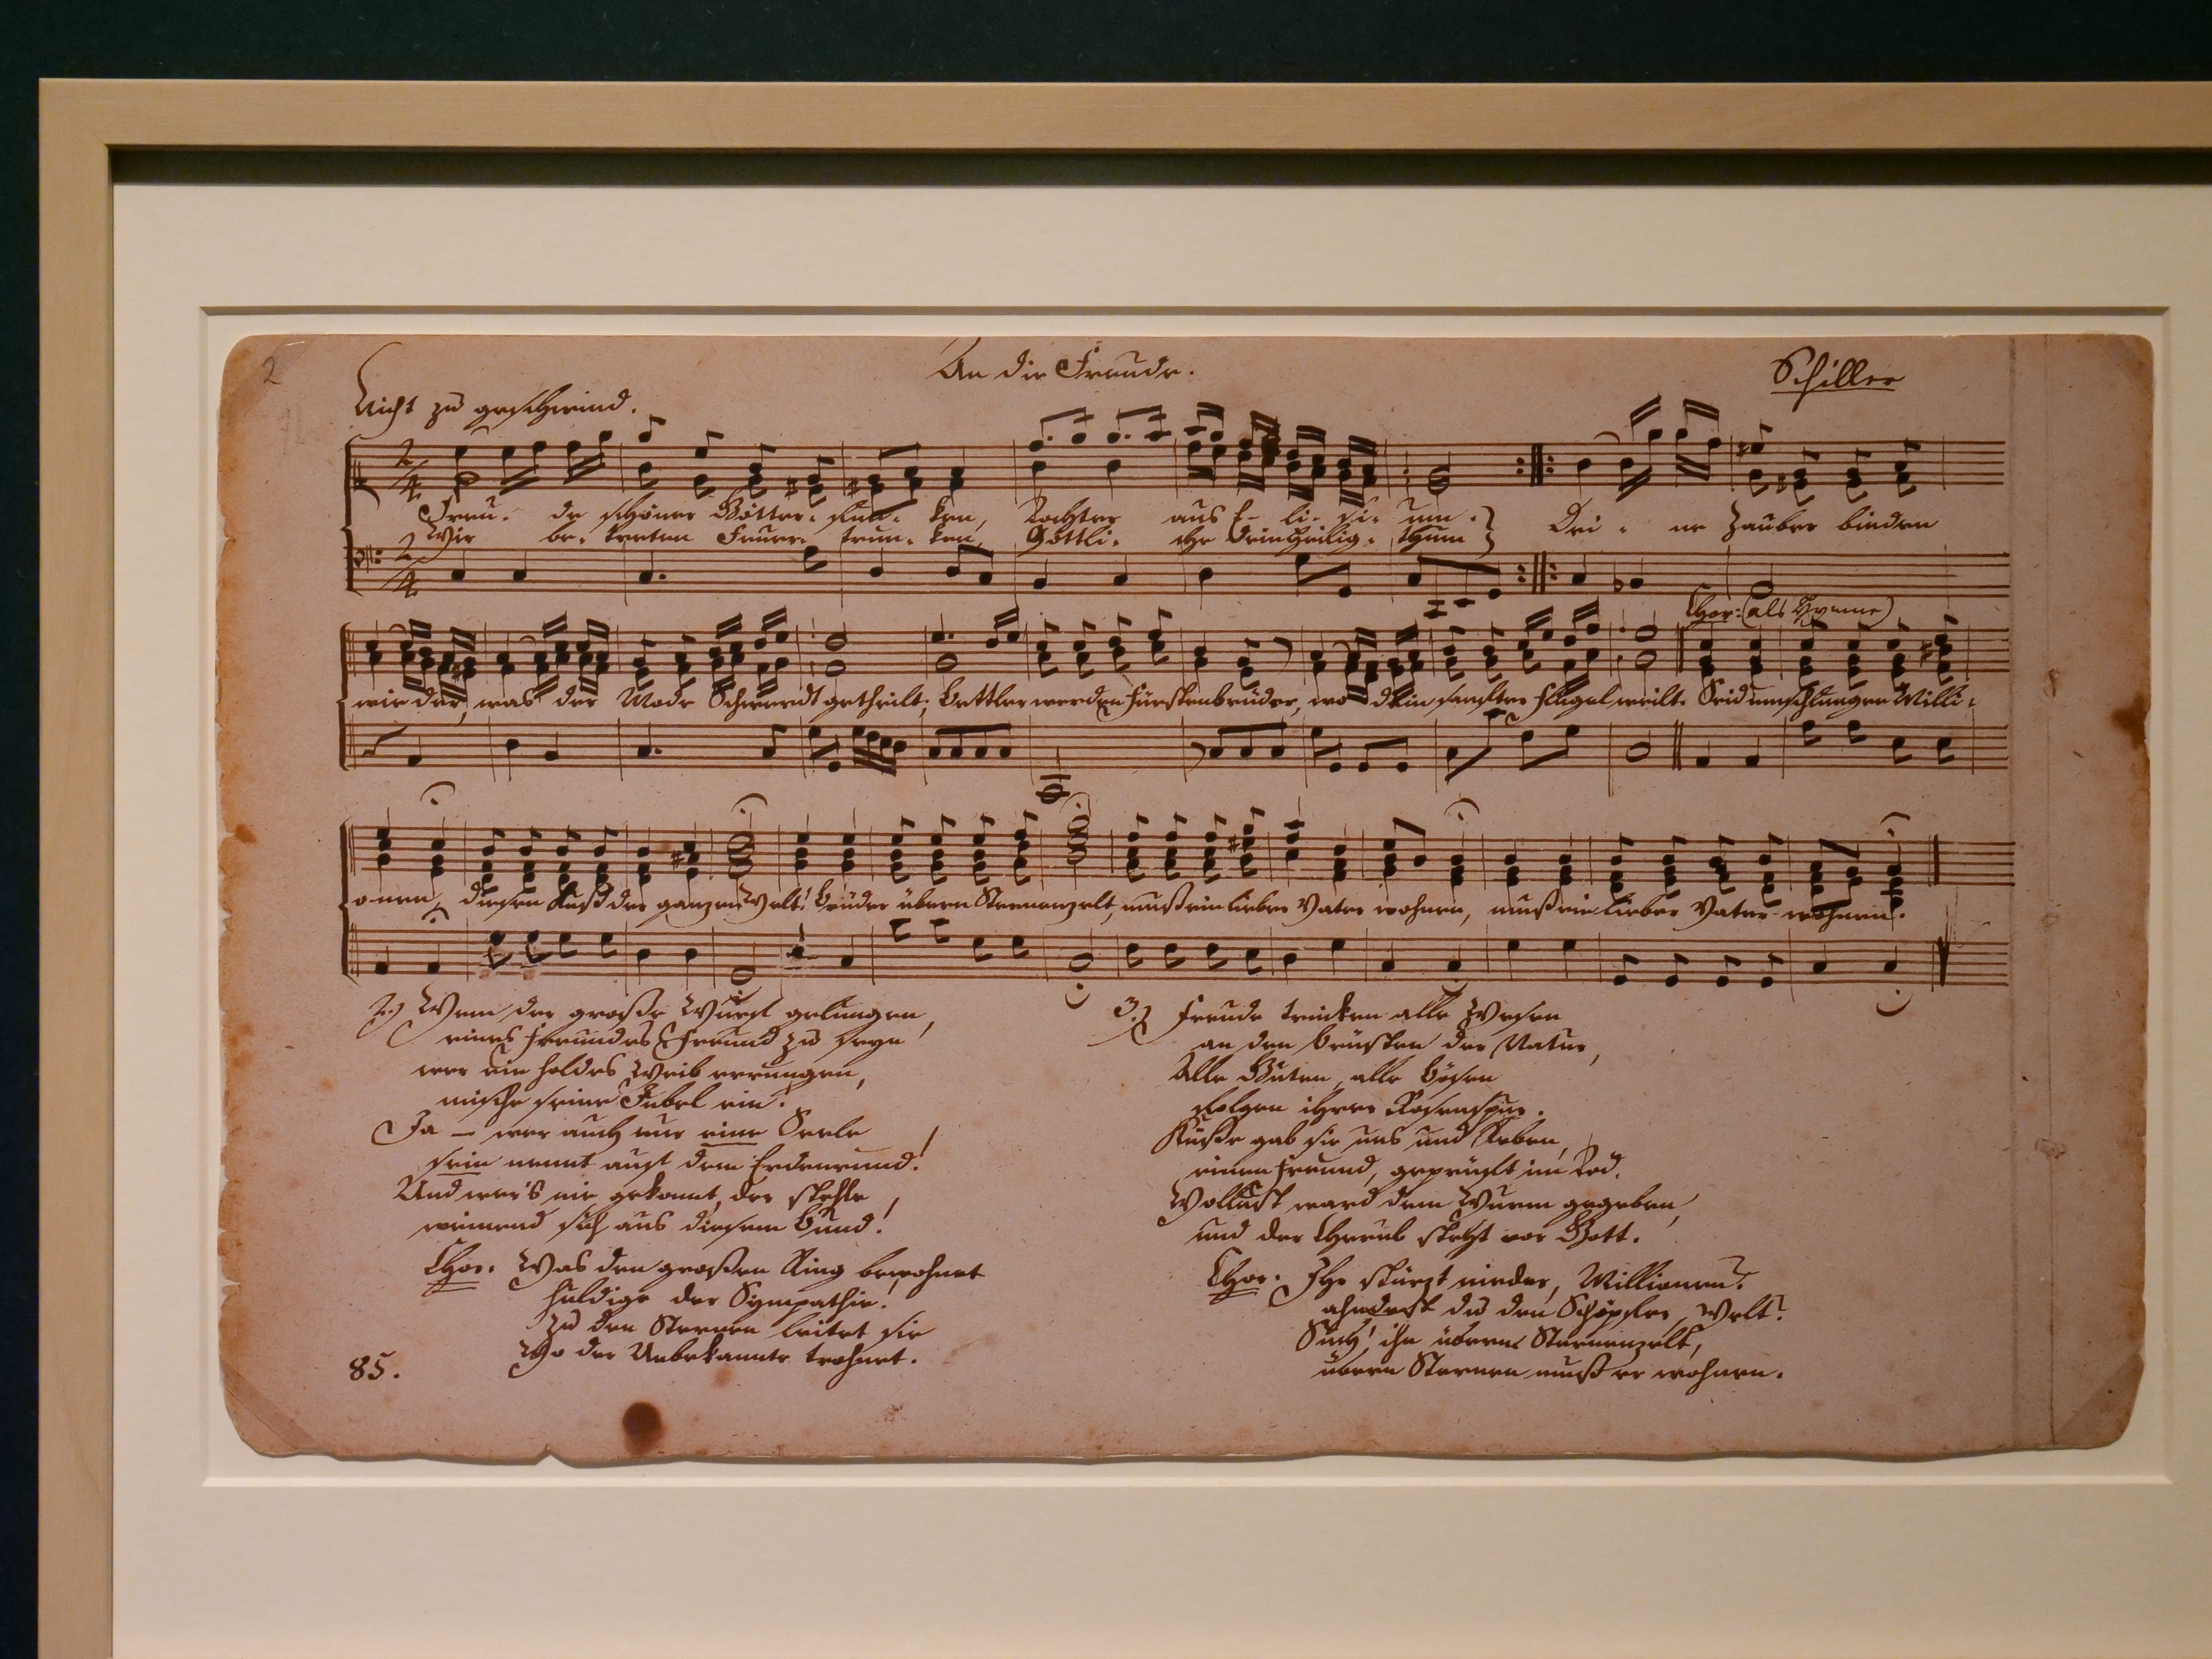 2
An die Freude.
Schiller
Nicht zu geschwind.
2/4
Freu- de schöner Götter- fun- ken, Tochter aus E- li- si- um. Dei- ne Zauber binden
Wir be- treten Feuer- trun- ken, Göttli- che dein Heilig- thum
2/4
Chor: (als Hymne)
wieder, was der Mode Schwerdt getheilt; Bettler werden Fürstenbrüder, wo dein sanfter Flügel weilt. Seid umschlungen Milli-
onen, diesen Kuß der ganzen Welt! Brüder übern Sternenzelt, muß ein lieber Vater wohnen, muß ein lieber Vater wohnen.
2.) Wem der große Wurf gelungen,
eines Freundes Freund zu seyn
wer ein holdes Weib errungen,
mische seine Jubel ein!
Ja – wer auch nur eine Seele
sein nennt auf dem Erdenrund!
Und wer's nie gekonnt, der stehle
weinend sich aus diesem Bund!
Chor. Was den großen Ring bewohnet
huldige der Sympathie!
Zu den Sternen leitet sie
Wo der Unbekannte trohnet.
85.
3.) Freude trinken alle Wesen
an den Brüsten der Natur,
Alle Guten, alle Bösen
folgen ihrer Rosenspur.
Küße gab sie uns und Reben,
einen Freund, geprüft im Tod.
Wollust ward dem Wurm gegeben,
und der Cherub steht vor Gott.
Chor. Ihr stürzt nieder, Millionen?
ahndest du den Schöpfer, Welt?
Such' ihn überm Sternenzelt,
übern Sternen muß er wohnen.